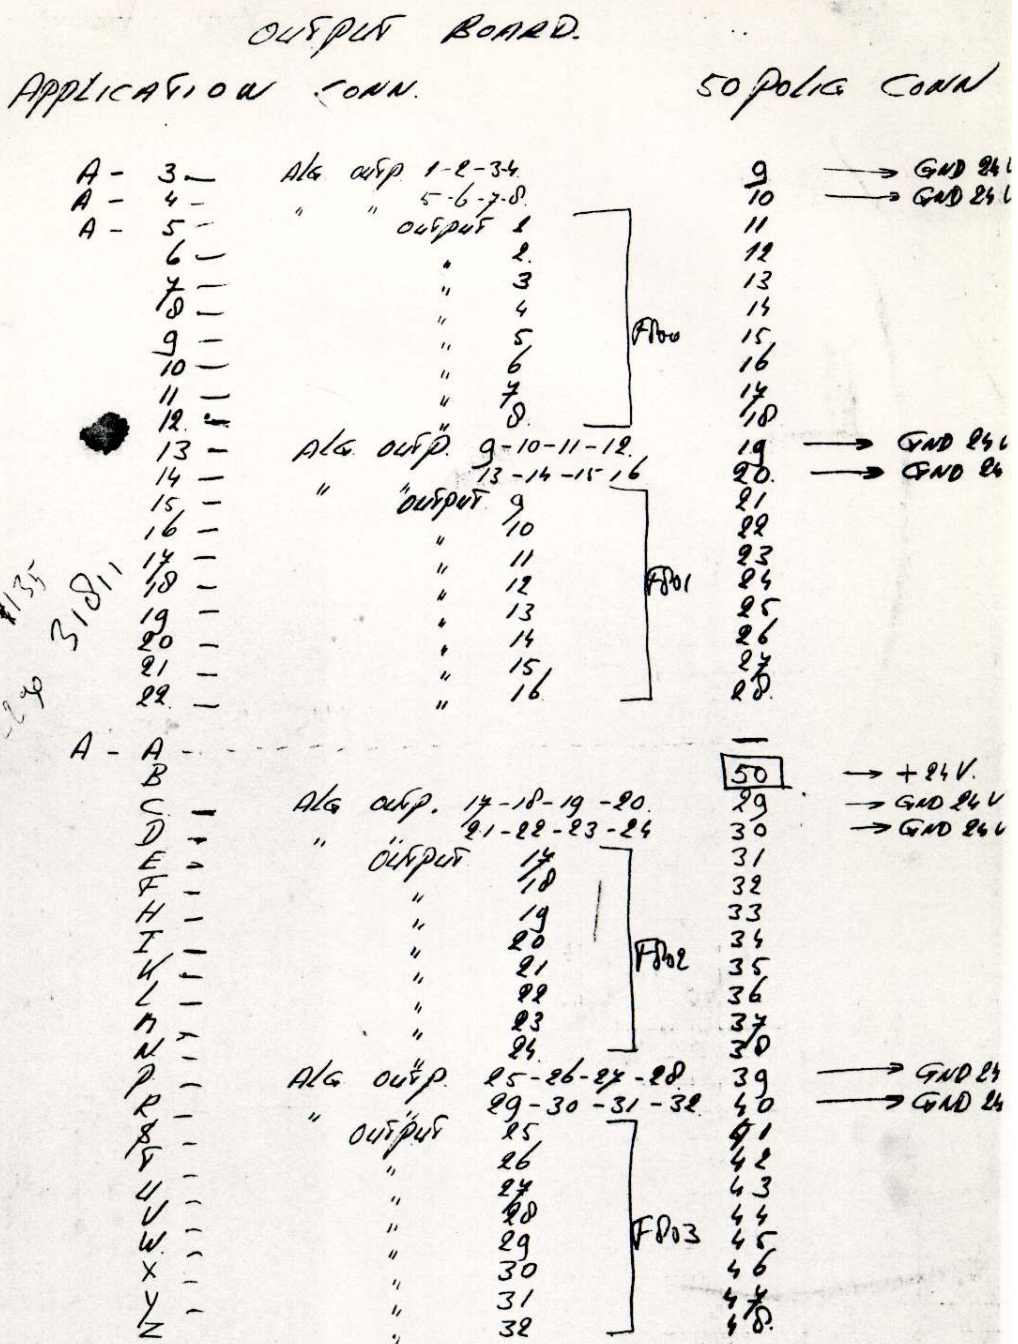 OUTPUT BOARD.
APPLICATION CONN. 50 POLIG CONN
A - 3 — Alg. outp. 1-2-3-4 9 → GND 24V
A - 4 - " " 5-6-7-8. 10 → GND 24V
A - 5 - output 1 11
6 — " 2. 12
7 — " 3 13
8 — " 4 14
9 - " 5 15
10 — " 6 F800 16
11 — " 7 17
12. - " 8. 18
13 - Alg. outp. 9-10-11-12. 19 → GND 24V
14 - " " 13-14-15 16 20. → GND 24
15 - output 9 21
16 - " 10 22
17 - " 11 23
18 - " 12 F801 24
19 " 13 25
20 - " 14 26
21 - " 15 27
22. - " 16 28.
31811
A - A - —
B 50 → +24V.
C. - Alg outp. 17-18-19-20. 29 → GND 24V
D - " " 21-22-23-24 30 → GND 24V
E - output 17 31
F - " 18 32
H - " 19 33
I - " 20 34
K - " 21 F802 35
L - " 22 36
M - " 23 37
N. - " 24. 38
P. - Alg outp. 25-26-27-28. 39 → GND 24
R - " " 29-30-31-32. 40 → GND 24
S - output 25 41
T - " 26 42
U - " 27 43
V - " 28 44
W. - " 29 F803 45
X - " 30 46
Y - " 31 47
Z " 32 48.